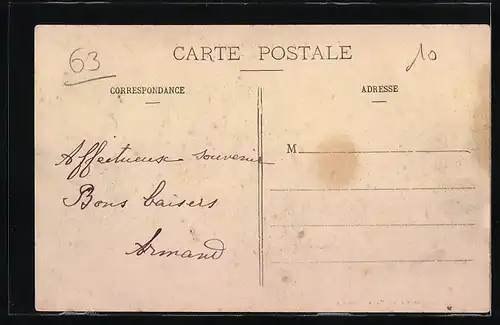 63
10
CARTE POSTALE
CORRESPONDANCE
ADRESSE
Affectueux souvenir
Bons baisers
Armand
M